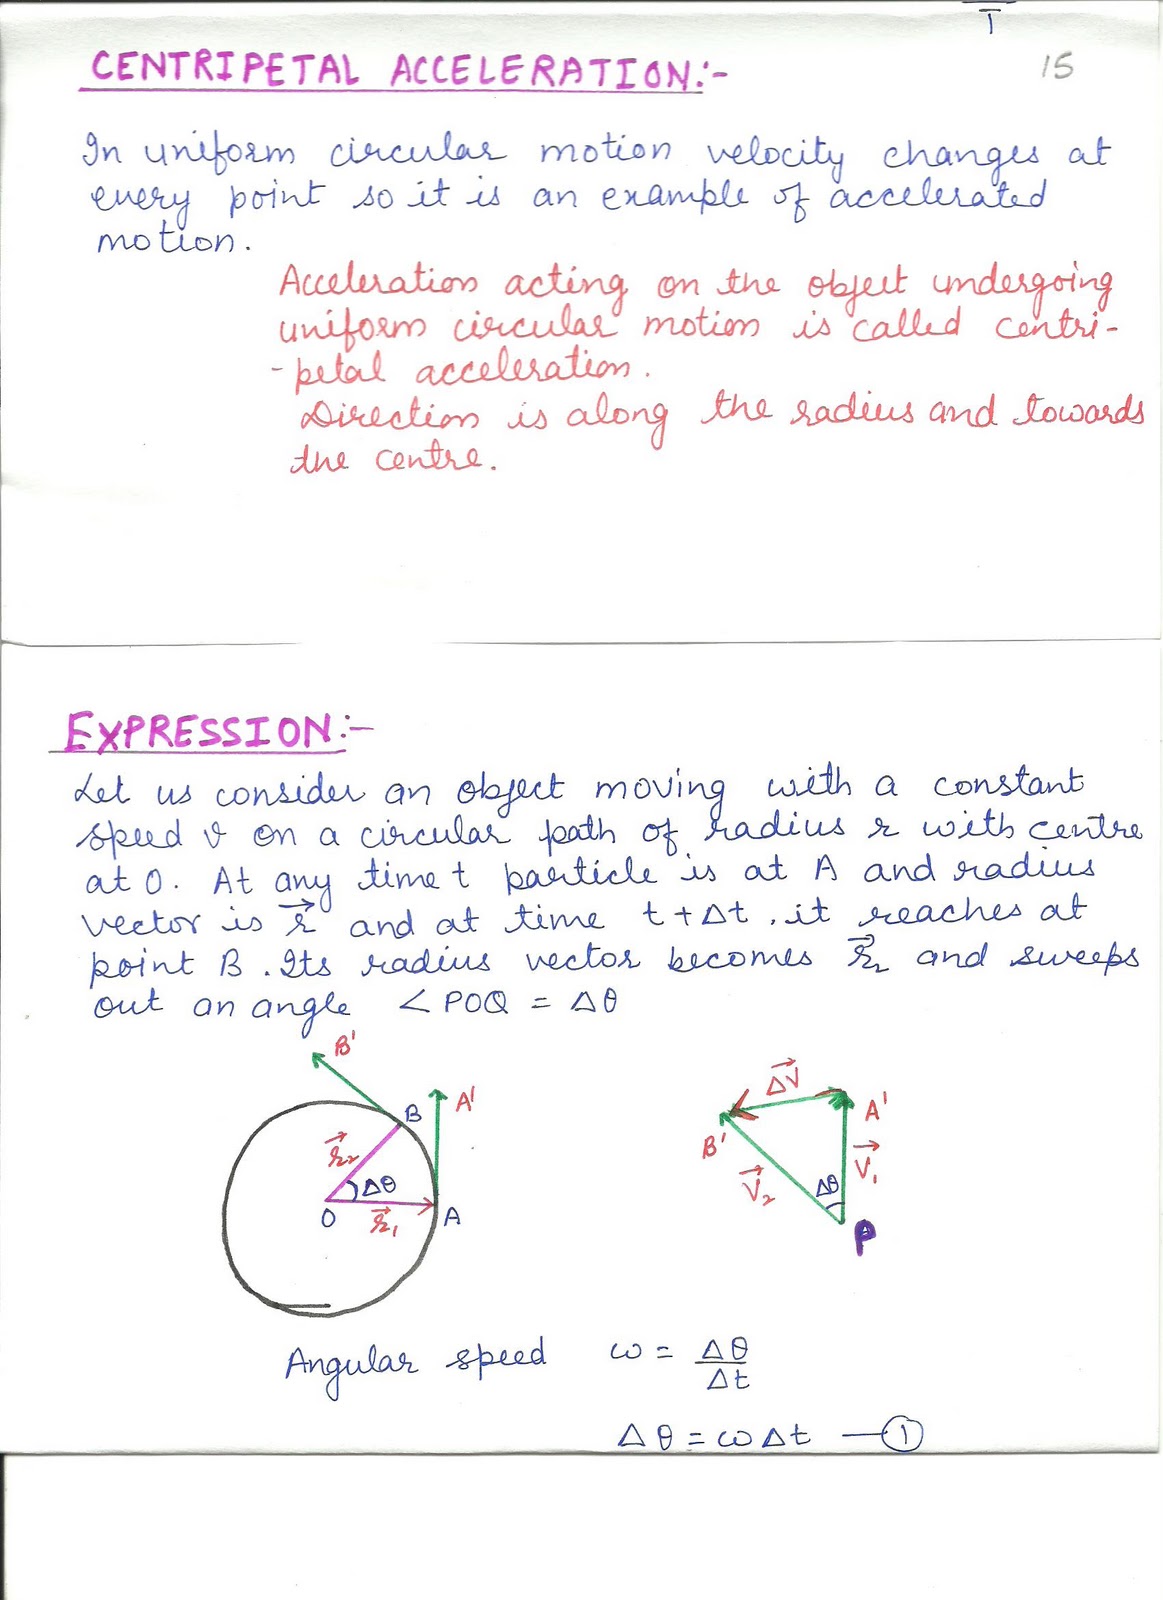 T
15
CENTRIPETAL ACCELERATION:-
In uniform circular motion velocity changes at
every point so it is an example of accelerated
motion.
Acceleration acting on the object undergoing
uniform circular motion is called centri-
-petal acceleration.
Direction is along the radius and towards
the centre.
EXPRESSION:-
Let us consider an object moving with a constant
speed v on a circular path of radius r with centre
at O. At any time t particle is at A and radius
vector is r⃗ and at time t+Δt, it reaches at
point B. Its radius vector becomes r⃗₂ and sweeps
out an angle ∠POQ = Δθ
B'
B
A'
r⃗₂
Δθ
O
r⃗₁
A
ΔV⃗
A'
B'
V⃗₁
V⃗₂
Δθ
P
Angular speed ω = Δθ/Δt
Δθ = ωΔt —①